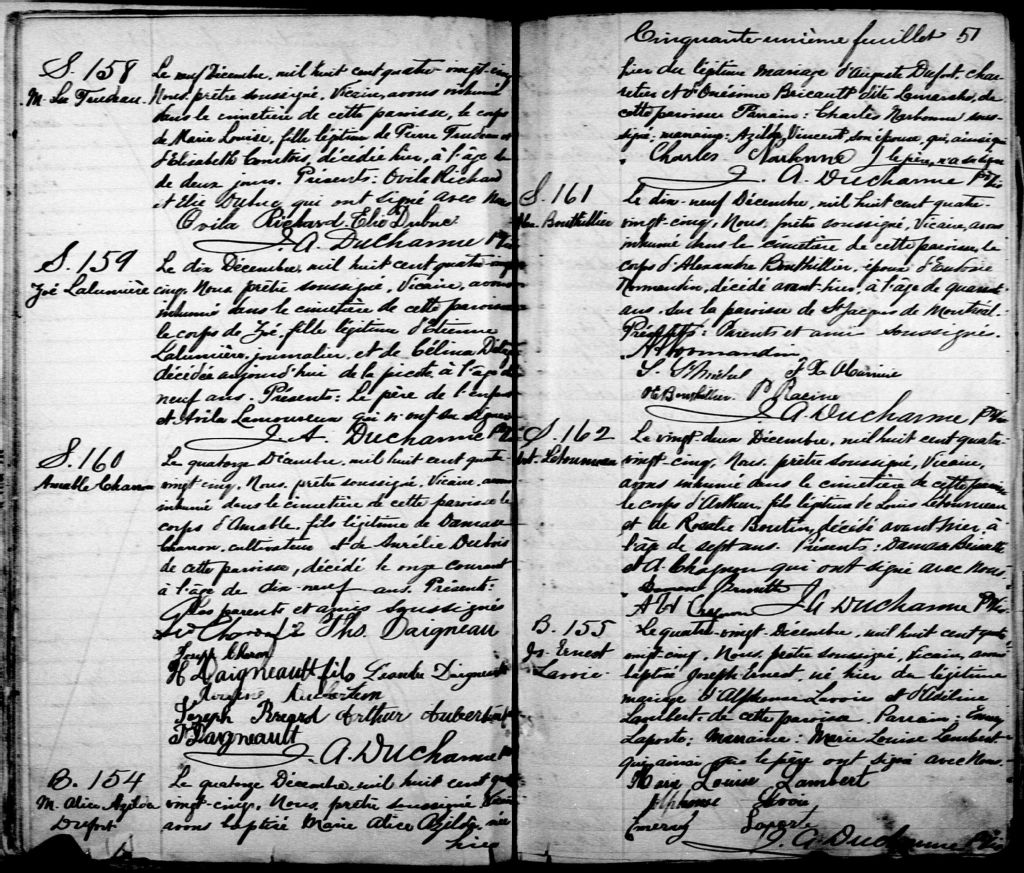 S. 158
M. Ls. Trudeau
Le neuf Décembre, mil huit cent quatre-vingt-cinq
Nous, prêtre soussigné, Vicaire, avons inhumé
dans le cimetière de cette paroisse, le corps
de Marie Louise, fille légitime de Pierre Trudeau et
d'Elizabeth Comtois, décédée hier, à l'âge de
de deux jours. Présents: Ovila Richard
et Elie Dubuc qui ont signé avec Nous
Ovila Richard. Elie Dubuc
J. A. Ducharme Ptre
S. 159
Zoé Lalumière
Le dix Décembre, mil huit cent quatre-vingt
cinq, Nous, prêtre soussigné, Vicaire, avons
inhumé dans le cimetière de cette paroisse
le corps de Zoé, fille légitime d'Etienne
Lalumière, journalier, et de Célina
décédée aujourd'hui de la picote à l'âge de
neuf ans. Présents: Le père de l'enfant
et Avila Lamoureux qui n'ont su signer
J. A. Ducharme Ptre
S. 160
Amable Charon
Le quatorze Décembre, mil huit cent quatre-
vingt-cinq, Nous, prêtre soussigné, Vicaire, avons
inhumé dans le cimetière de cette paroisse le
corps d'Amable, fils légitime de Damase
Charron, cultivateur et de Aurélie Dubois
de cette paroisse, décédé le onze courant
à l'âge de dix-neuf ans. Présent:
parents et amis Soussignés
Ths. Daigneau
Joseph Charon
H Daigneault fils Leandre Daigneault
Aubertin
Joseph Benard Arthur Aubertin
Daigneault
J. A. Ducharme Ptre
B. 154
M. Alice Azilda
Dufort
Le quatorze Décembre, mil huit cent quatre
vingt-cinq, Nous, prêtre soussigné Vicaire
avons baptisé Marie Alice Azilda, née
hier
Cinquante-unième feuillet 51
hier du légitime mariage d'Auguste Dufort, char-
retier et d'Onésime Bricault dite Lamarche, de
cette paroisse Parrain: Charles Narbonne sous-
signé: marraine: Azilda Vincent son épouse, qui, ainsi que
Charles Narbonne le père, n'a su signer
J. A. Ducharme Ptre
S. 161
Alex. Bouthillier
Le dix-neuf Décembre, mil huit cent quatre-
vingt-cinq, Nous, prêtre soussigné, Vicaire, avons
inhumé dans le cimetière de cette paroisse, le
corps d'Alexandre Bouthillier, époux d'Eudoxie
Normandin, décédé avant-hier, à l'âge de quarante
ans, sur la paroisse de St Jacques de Montréal.
Présents: Parents et amis soussignés.
Normandin
S. St Michel F X
Bouthillier P Racine
J. A. Ducharme Ptre
S. 162
Art. Letourneau
Le vingt-deux Décembre, mil huit cent quatre-
vingt-cinq, Nous, prêtre soussigné, Vicaire,
avons inhumé dans le cimetière de cette paroisse
le corps d'Arthur, fils légitime de Louis Létourneau
et de Rosalie Boutin, décédé avant hier, à
l'âge de sept ans. Présents: Damase Brunette
et A. Chagnon qui ont signé avec Nous.
Damase Brunette
J. A. Ducharme Ptre
B. 155
Js. Ernest
Lavoie
Le quatre-vingt Décembre, mil huit cent quatre
vingt-cinq, Nous, prêtre soussigné, Vicaire, avons
baptisé Joseph Ernest, né hier du légitime
mariage d'Alphonse Lavoie et d'Adéline
Lambert de cette paroisse. Parrain: Emery
Laporte: Marraine: Marie Louise Lambert
qui, ainsi que le père ont signé avec Nous.
Mary Louise Lambert
Alphonse Lavoie
Emery Laporte
J. A. Ducharme Ptre